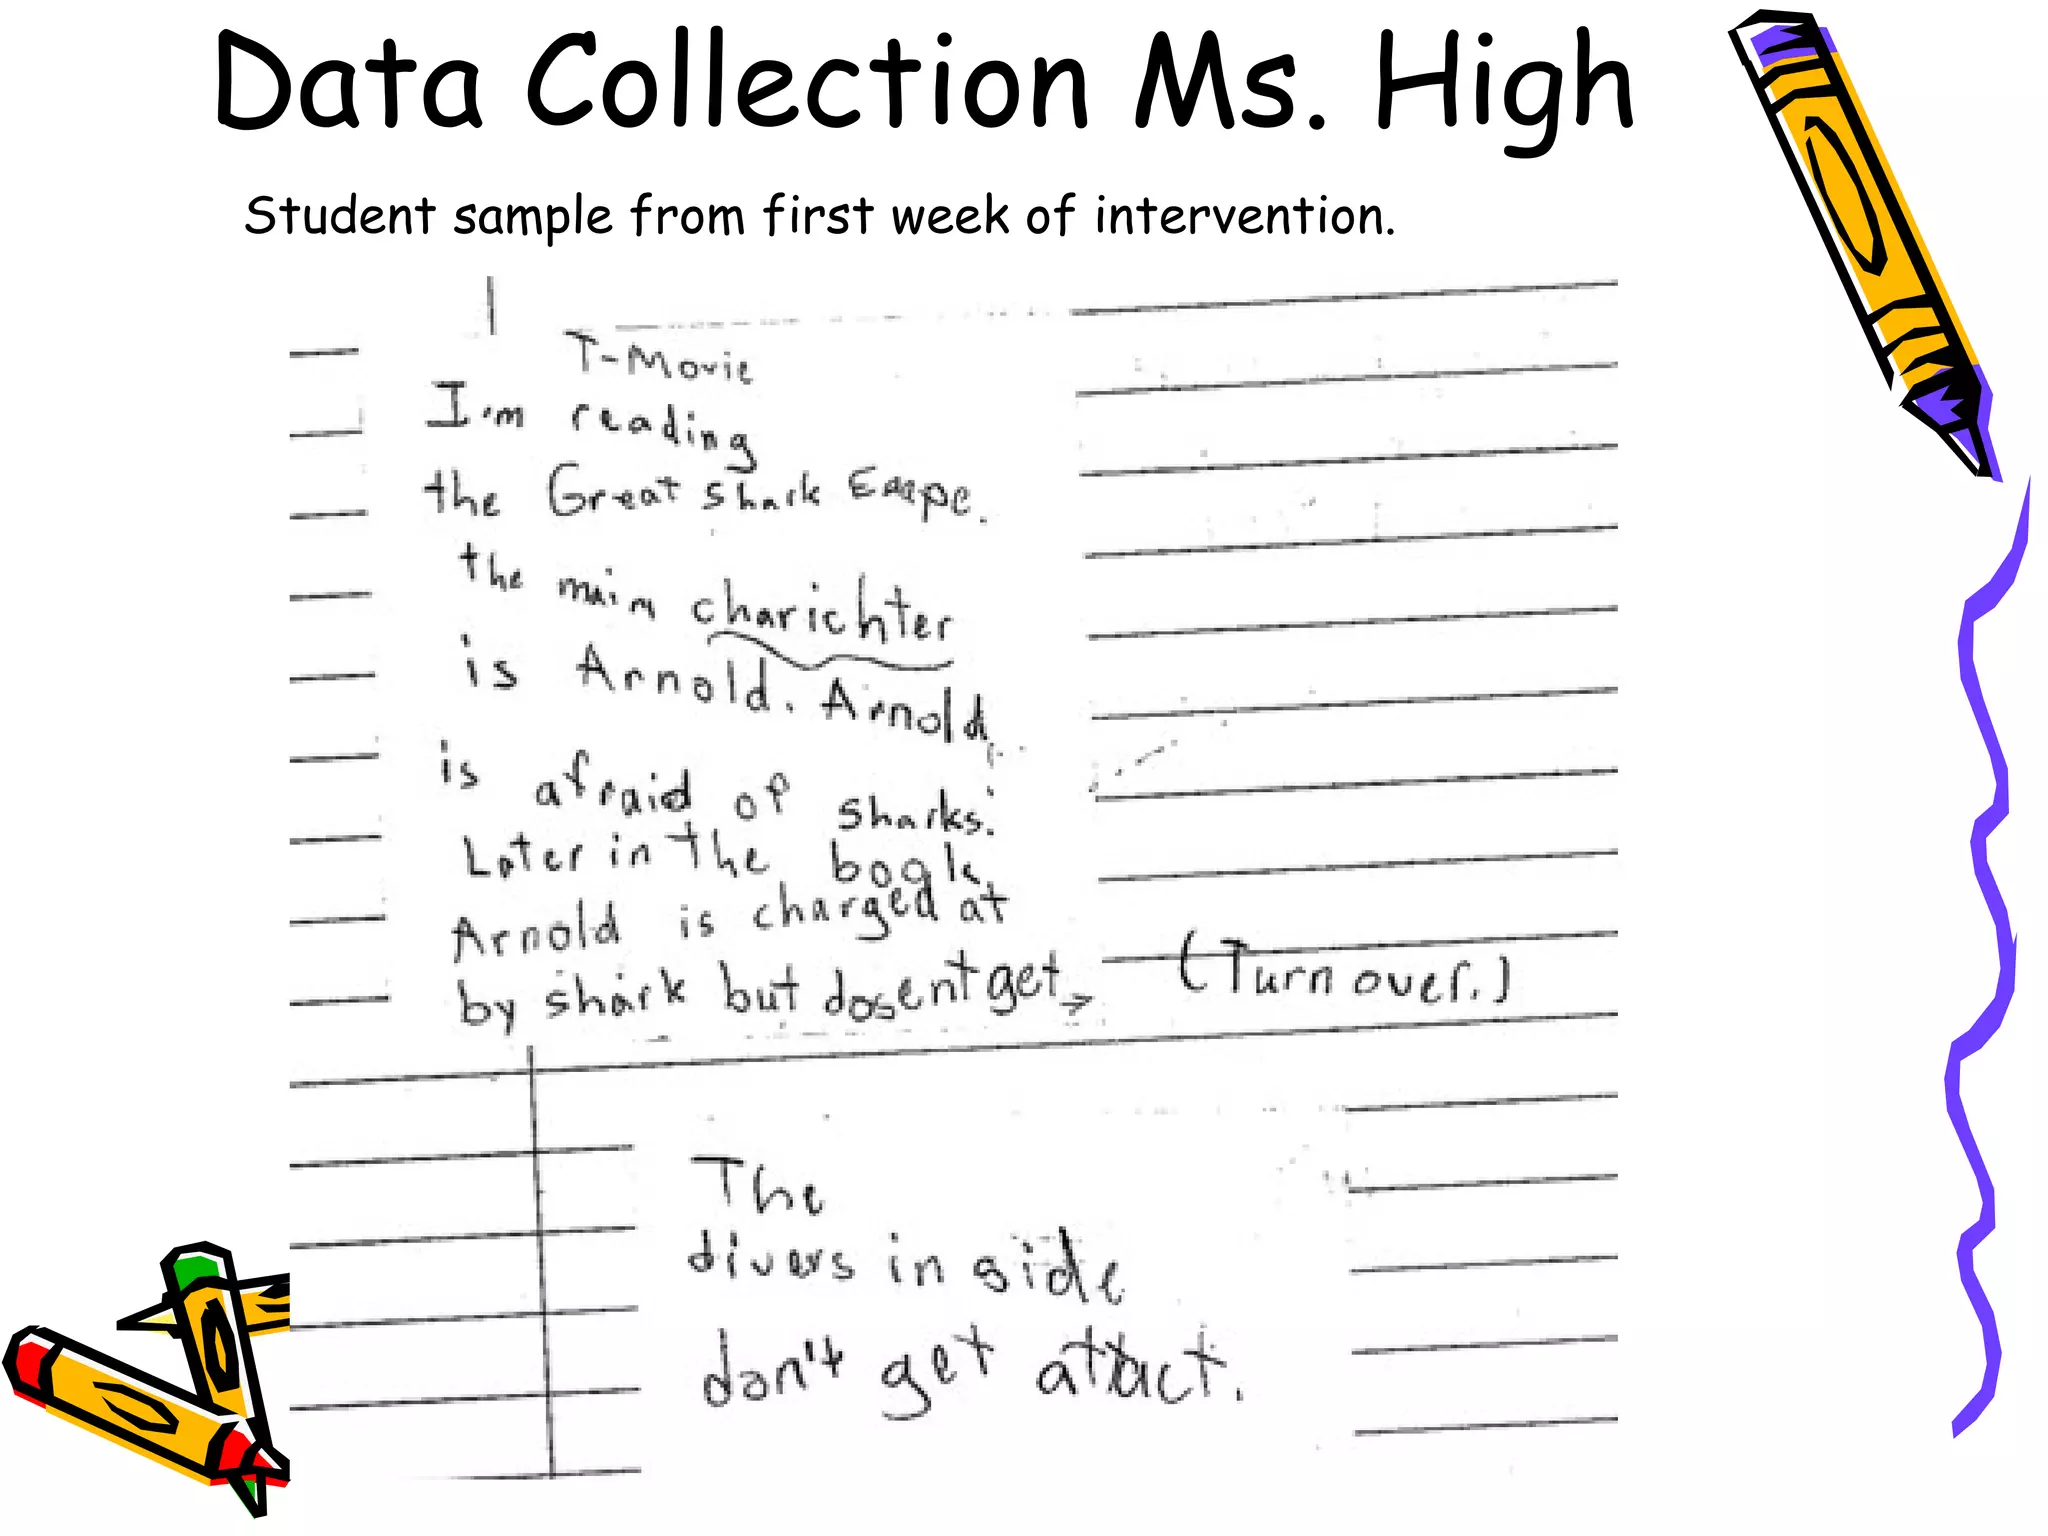 Data Collection Ms. High
Student sample from first week of intervention.
T-Movie
I'm reading
the Great shark Escape.
the main charichter
is Arnold. Arnold
is afraid of sharks.
Later in the book
Arnold is charged at
by shark but dosent get →
(Turn over.)
The
divers in side
don't get attact.